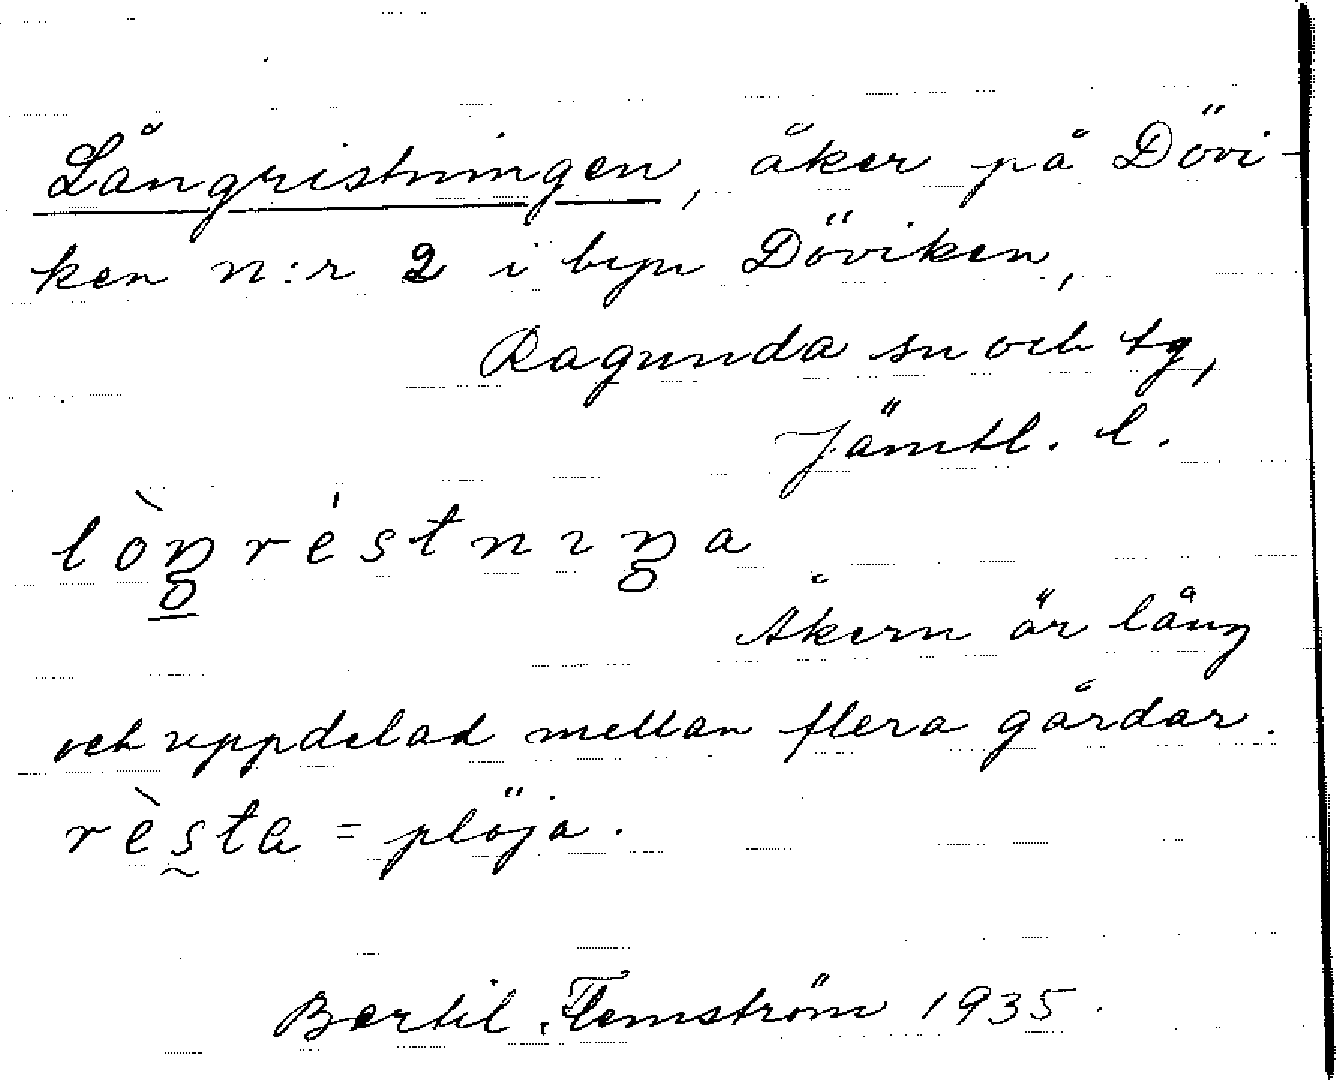 Långristningen, åker på Dövi-
ken n:r 2 i byn Döviken,
Ragunda sn och tg,
Jämtl. l.
lòŋ̱réstnıŋa
Åkern är lång
och uppdelad mellan flera gårdar.
rès̰ta = plöja.
Bertil Flemström 1935.